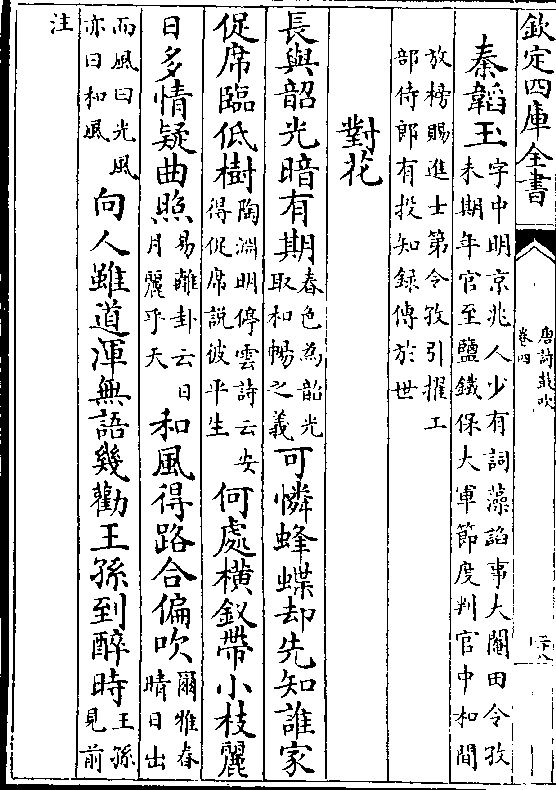 欽定四庫全書
唐詩鼓吹
卷四
秦韜玉
字中明京兆人少有詞藻諂事大閹田令孜
未期年官至鹽鐵保大軍節度判官中和間
放榜賜進士第令孜引擢工
部侍郎有投知録傳於世
對花
長與韶光暗有期
春色為韶光
取和暢之義
可憐蜂蝶却先知誰家
促席臨低樹
陶淵明停雲詩云安
得促席說彼平生
何處橫釵帶小枝麗
日多情疑曲照
易離卦云日
月麗乎天
和風得路合偏吹
爾雅春
晴日出
而風曰光風
亦曰和風
向人雖道渾無語幾勸王孫到醉時
王孫
見前
注